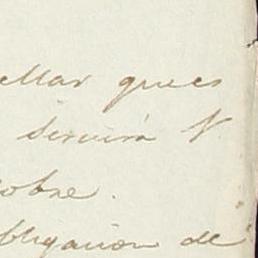 ellar que es
servirá V
cobre.
obligacion de